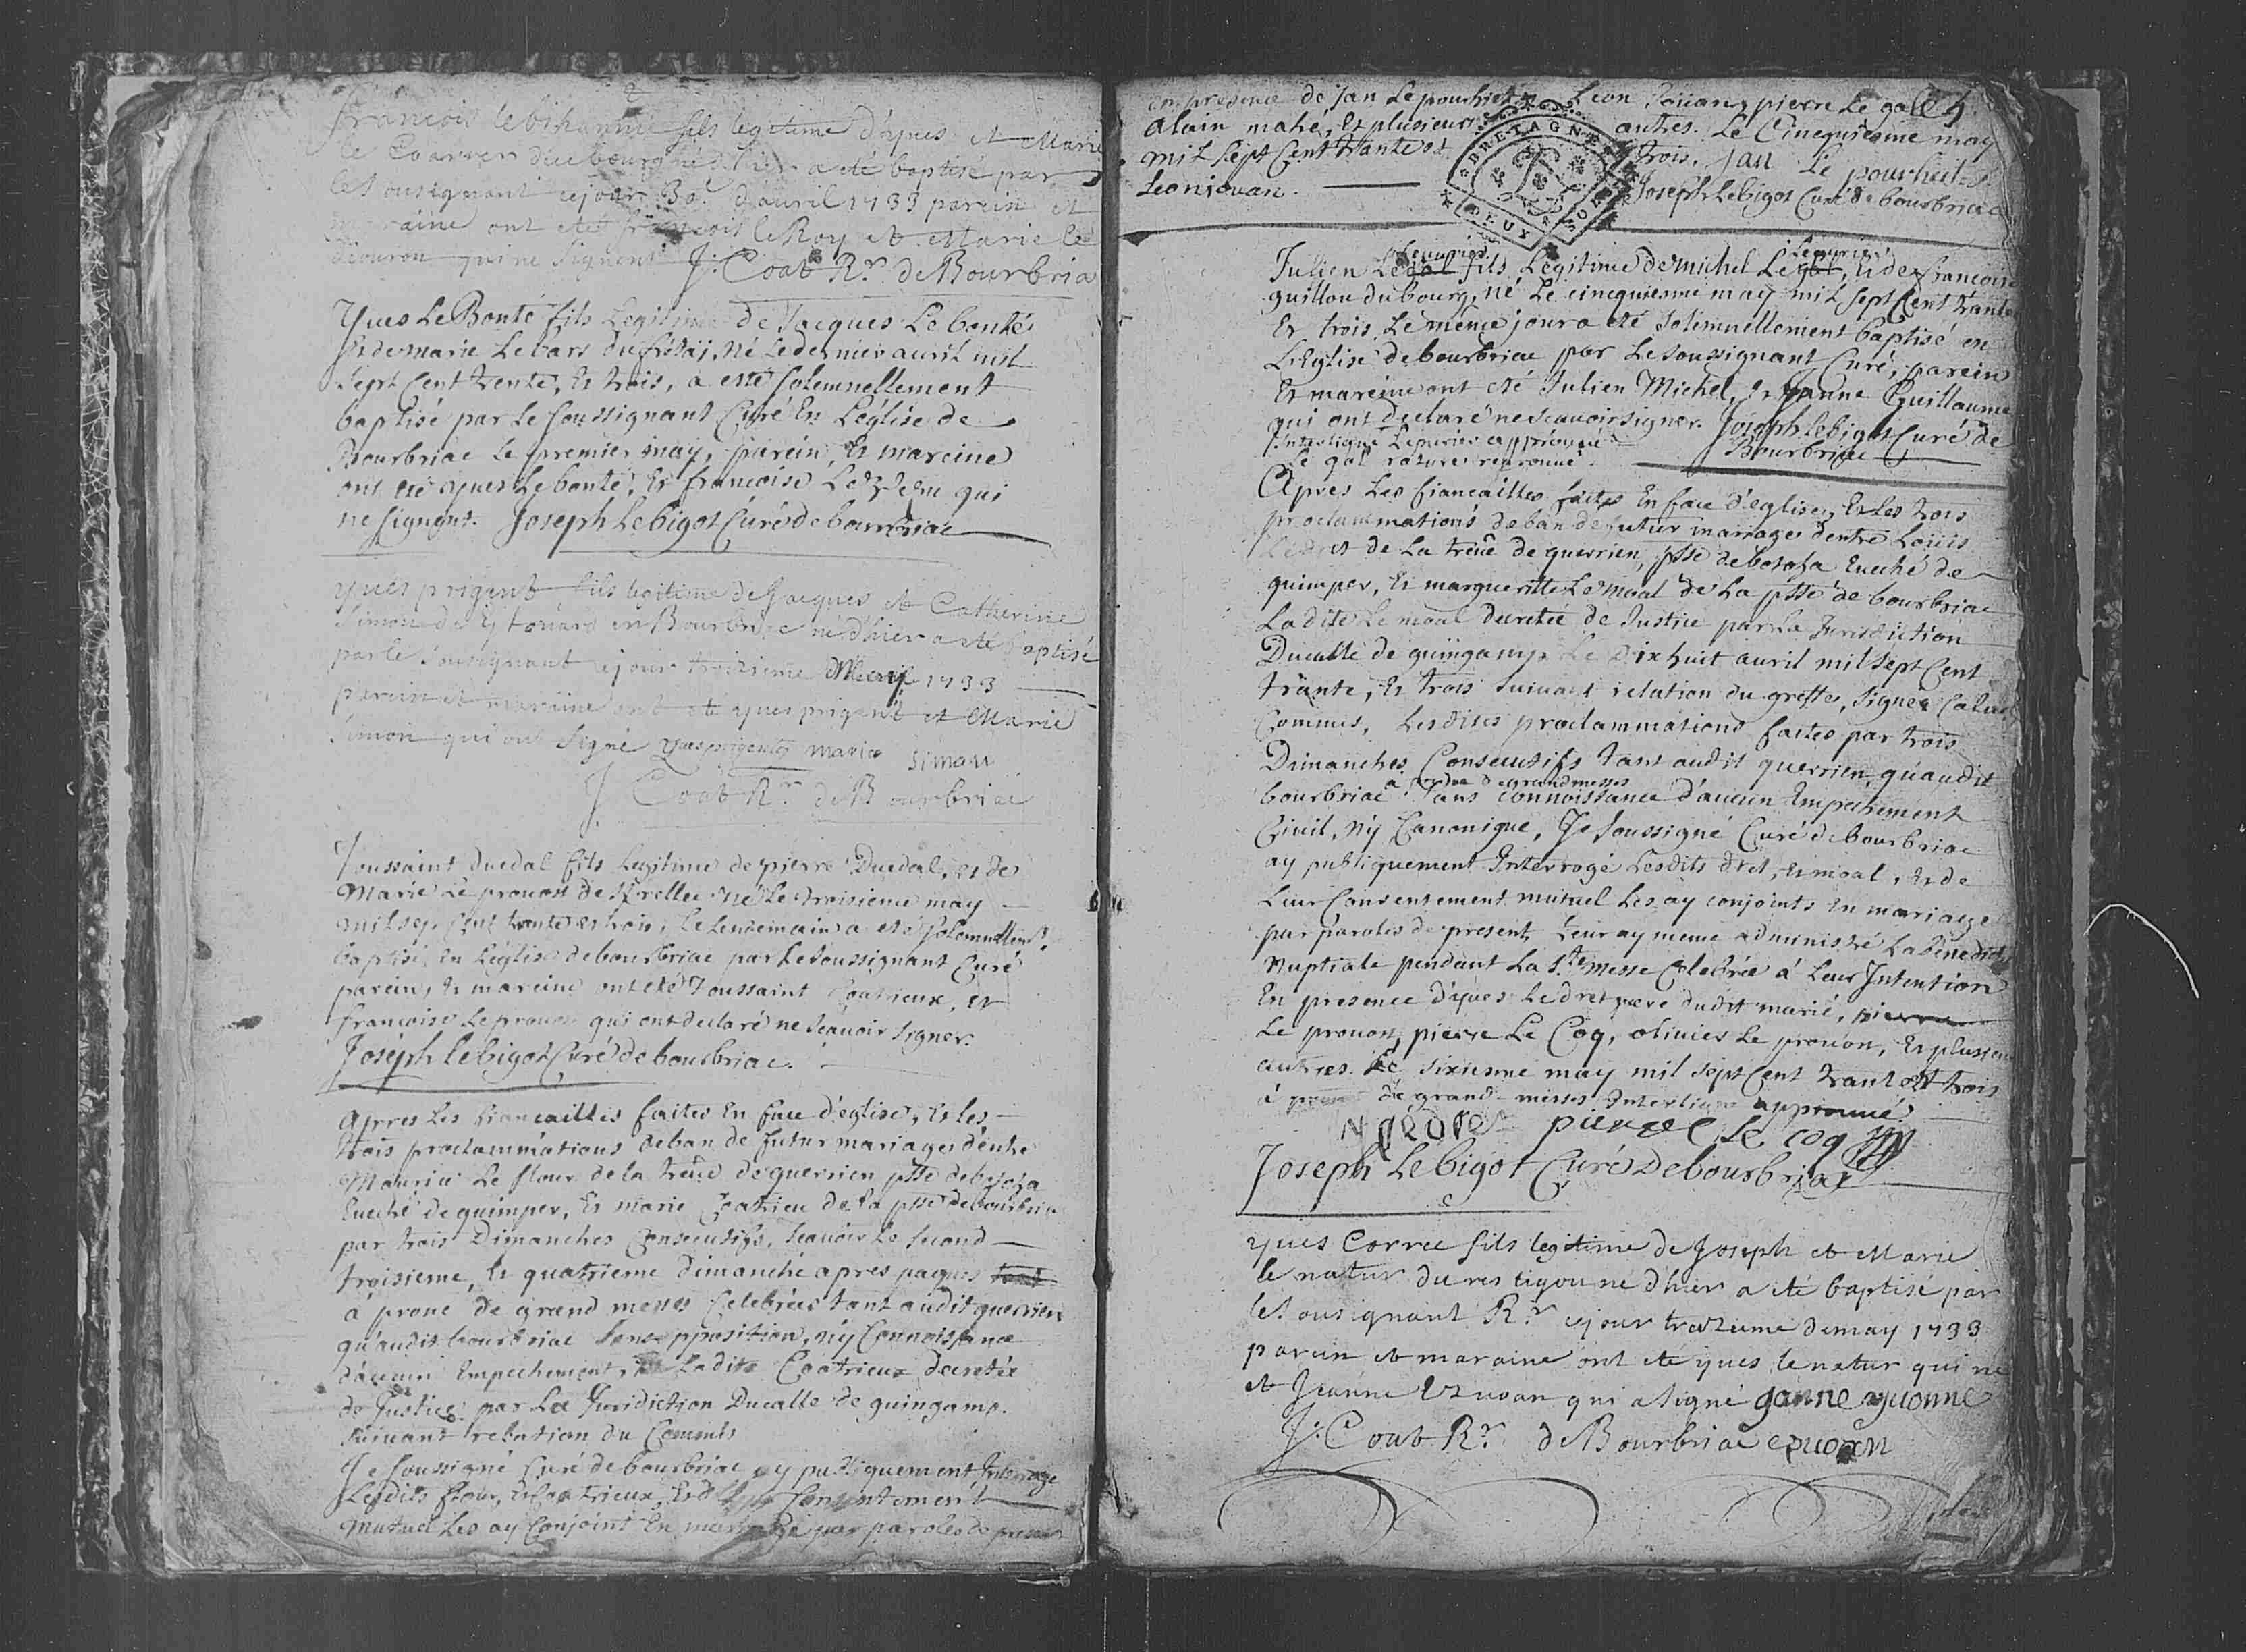 francois lebihannic fils legitime d'yves et Marie
le Coarrer du bourg né d'hier a eté baptisé par
le Sousignant ce jour 30e d'avril 1733 parein et
maraine ont eté françois le Roy et Marie le
qui ne signent J: Coat Rr. de Bourbria
Yves Le Bonté fils Legitime de Jacques Le bonté
Et de marie Le bars du né le dernier avril mil
Sept Cent trente, Et trois, a esté Solemnellement
baptisé par Le Soussignant Curé En L'église de
Bourbriac Le premier may, parein, Et mareine
ont eté yves Le bonté, Et francoise Le qui
ne signent. Joseph Lebigot Curé de bourbriac
yves prigent fils legitime de Jacques et Catherine
Simon de en Bourbriac né d'hier a eté baptisé
par le Sousignant ce jour troizieme May 1733
parein et maraine ont eté yves prigent et Marie
Simon qui ont signé yves prigent marie simon
J. Coat Rr. de Bourbriac
Toussaint duedal fils Legitime de pierre Duedal, et de
Marie Le provost de né Le troisieme may
mil sept Cent trente et trois, Le Lendemain a eté Solemnellemt.
baptisé En L'église de bourbriac par Le Soussignant Curé
parein, Et mareine ont eté Toussaint Coatrieux, et
francoise Le qui ont declaré ne Scavoir signer.
Joseph lebigot Curé de bourbriac.
Apres Les fiancailles faites En face d'eglise, Et les
trois proclammations de ban de futur mariage d'entre
Maurice Le flour de la treve de guerrien psse de botoha
Eveché de quimper, Et marie Coatrieu de La psse de bourbriac
par trois Dimanches Consecutifs, Scavoir Le second
troisieme, Et quatrieme dimanche apres paques tant
a prone de grand messes Celebrées tant audit guerrien
qu'audit bourbriac Sans opposition, ny Connoissance
d'aucun Empechement, Ladite Coatrieux decretée
de Justice par La Juridiction Ducalle de guingamp.
suivant relation du Commis
Je Soussigné Curé de bourbriac ay publiquement Interrogé
Lesdits flour, Et Coatrieux, Et de Leur Consentement
mutuel Les ay Conjoint En mariage par paroles de present
En presence de jan Le pourhiet Leon Jouan, pierre Le gall
alain mahé, Et plusieurs autres. Le Cinquiesme may
mil sept Cent trante et trois. jan Le pourhiet
Leon jouan. Joseph Lebigot Curé de bourbriac
Lemerier Lemerier
Julien Le gal fils Legitime de michel Le gal, Et de francoise
guillou du bourg, né Le cinquiesme may mil sept Cent trante
Et trois Le même jour a eté Solemnellement baptisé en
L'Eglise de bourbriac par Le soussignant Curé, parein
Et mareine ont eté Julien Michel, et Janne Guillaume
qui ont declaré ne Scavoir signer. Joseph lebigot Curé de
Interligne Lemerier approuvé Bourbriac
Le gal rature reprouvé
Apres Les fiancailles faites En face d'eglise, Et Les trois
proclammations de ban de futur mariage d'entre Louis
Le dret de La treve de guerrien, psse de botoha Eveché de
quimper, Et marguerilte Le moal de La psse de bourbriac
La dite Le moal decretée de Justice par La Jurisdiction
Ducalle de guingamp Le Dixhuit avril mil sept Cent
trante, Et trois suivant relation du greffe, signée
Commis, Lesdites proclammations faites par trois
Dimanches Consecutifs tant audit guerrien, qu'audit
a prone de grand messes
bourbriac Sans connoissance d'aucun Empechement
Civil, Ny Canonique, Je Soussigné Curé de bourbriac
ay publiquement Interrogé Lesdits dret, Et moal, Et de
Leur Consentement mutuel Les ay conjoints En mariage
par paroles de present, Leur ay meme administré La Bénediction
Nuptiale pendant La Ste. messe Celebrée á Leur Intention
En presence d'yves Le dret pere dudit marié, pierre
Le provon, pierre Le Coq, olivier Le provon, Et plusieurs
autres. Le sixiesme may mil sept Cent trant et trois
à prone de grand-messes Interligne approuvé
pierre le coq
Joseph Lebigot Curé De bourbriac
yves Corree fils legitime de Joseph et Marie
le natur du restigou né d'hier a eté baptisé par
le Sousignant Rr. ce jour treizieme de may 1733
parein et maraine ont eté yves le natur qui ne
et Jeanne qui a signé janne yuonne
J: Coat Rr. de Bourbriac